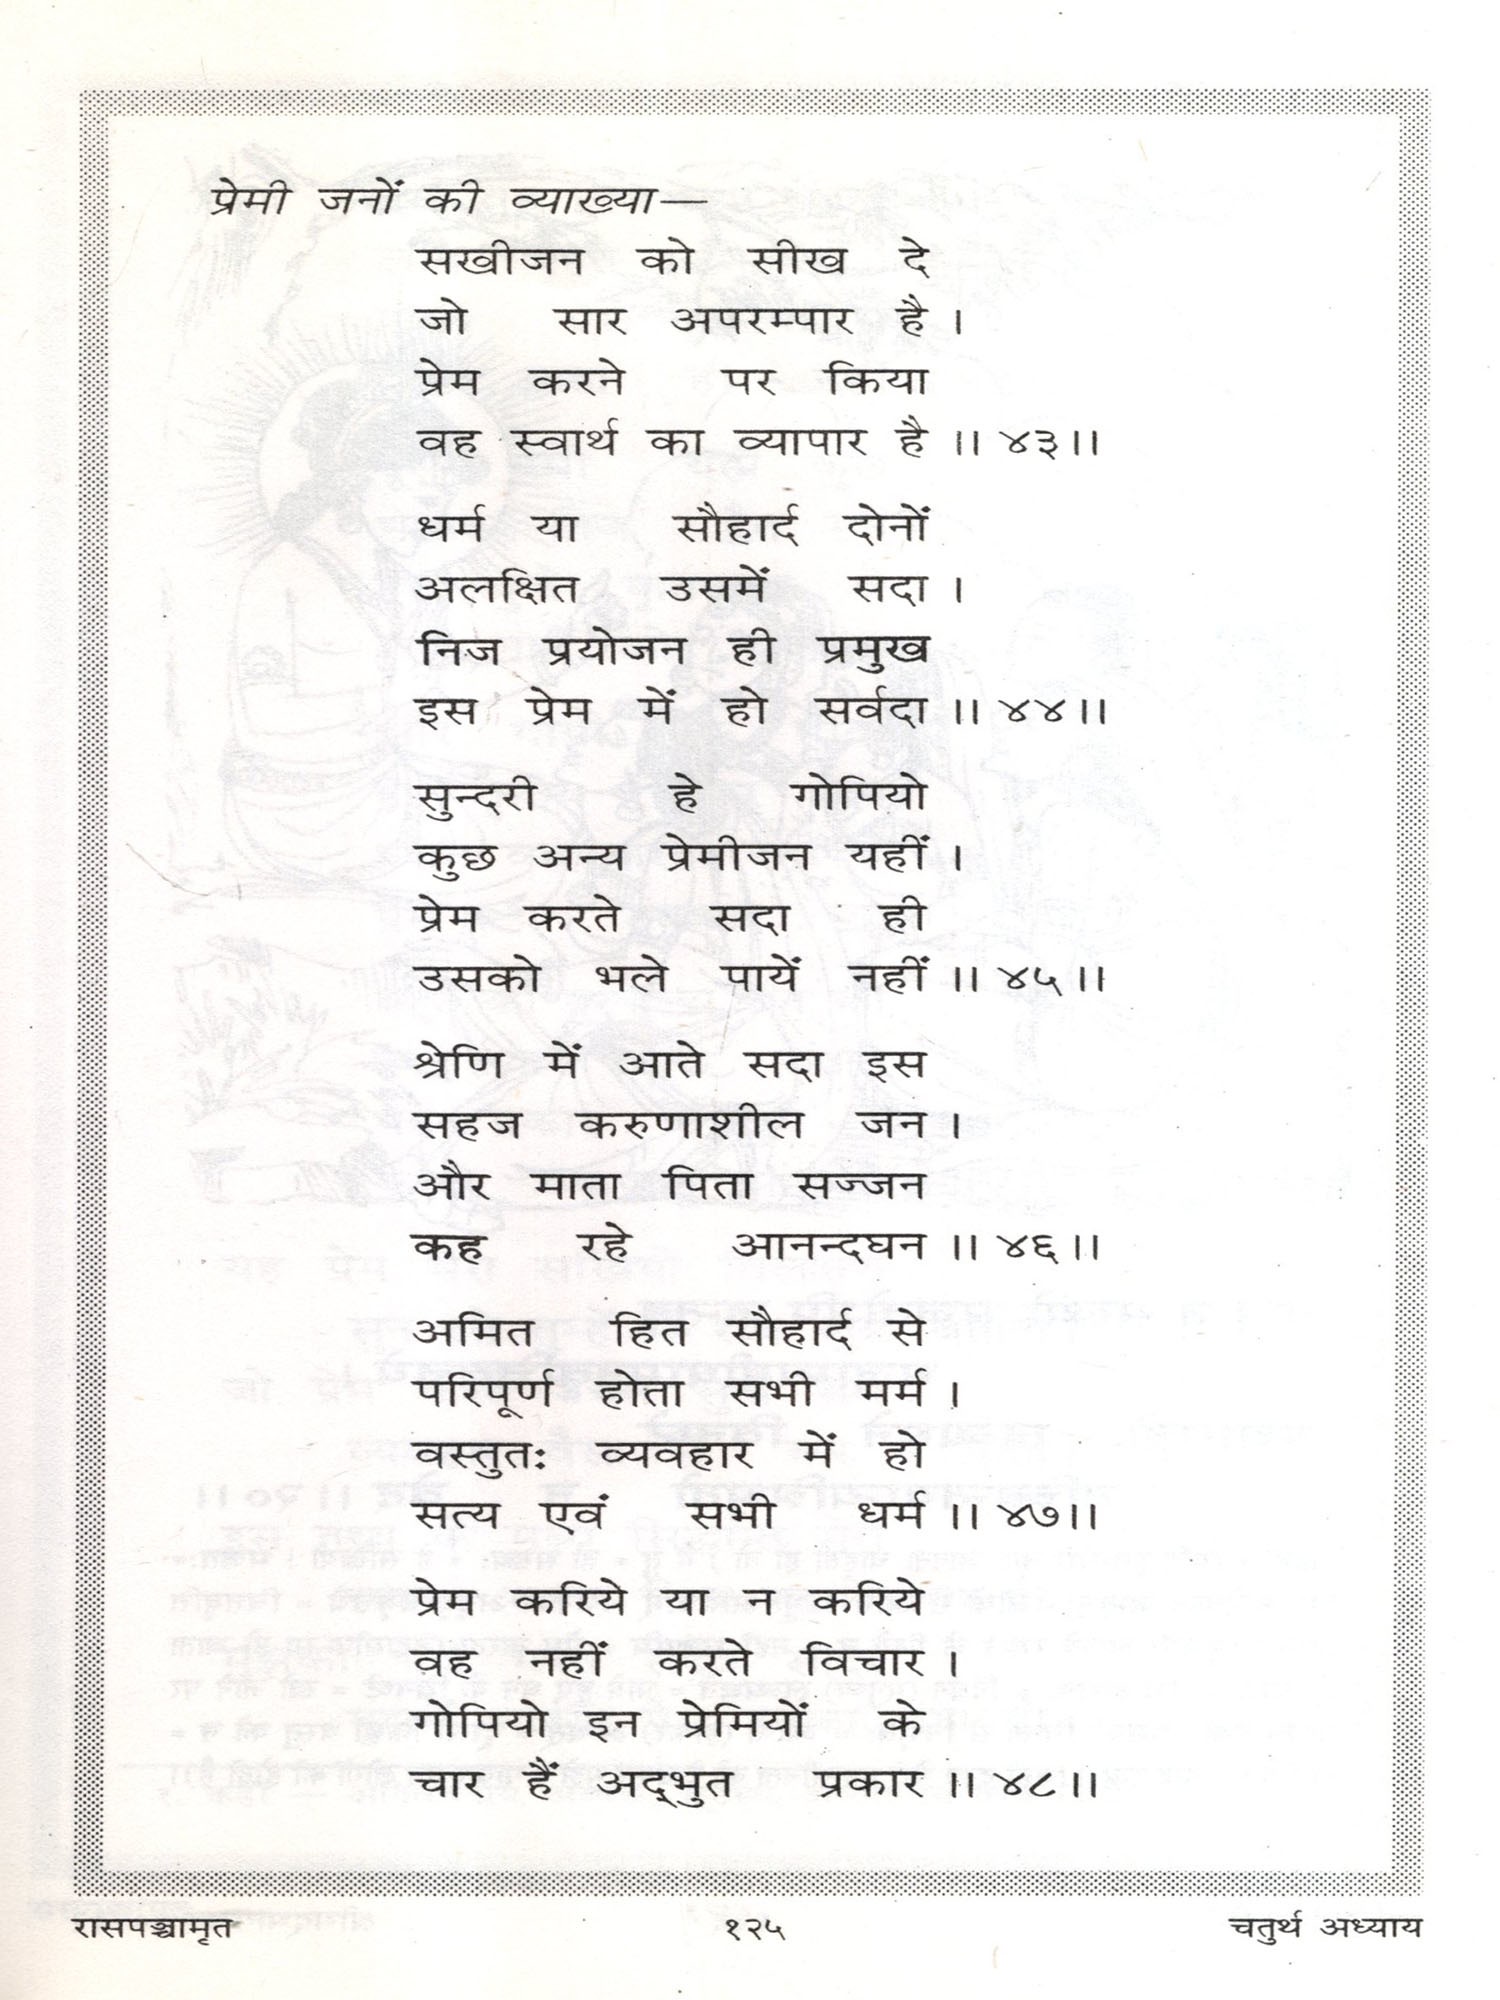 प्रेमी जनों की व्याख्या—
सखीजन को सीख दे
जो सार अपरम्पार है ।
प्रेम करने पर किया
वह स्वार्थ का व्यापार है ॥ ४३॥
धर्म या सौहार्द दोनों
अलक्षित उसमें सदा ।
निज प्रयोजन ही प्रमुख
इस प्रेम में हो सर्वदा ॥ ४४॥
सुन्दरी हे गोपियो
कुछ अन्य प्रेमीजन यहीं ।
प्रेम करते सदा ही
उसको भले पायें नहीं ॥ ४५॥
श्रेणि में आते सदा इस
सहज करुणाशील जन ।
और माता पिता सज्जन
कह रहे आनन्दघन ॥ ४६॥
अमित हित सौहार्द से
परिपूर्ण होता सभी मर्म ।
वस्तुतः व्यवहार में हो
सत्य एवं सभी धर्म ॥ ४७॥
प्रेम करिये या न करिये
वह नहीं करते विचार ।
गोपियो इन प्रेमियों के
चार हैं अद्‌भुत प्रकार ॥ ४८॥
रासपञ्चामृत १२५ चतुर्थ अध्याय